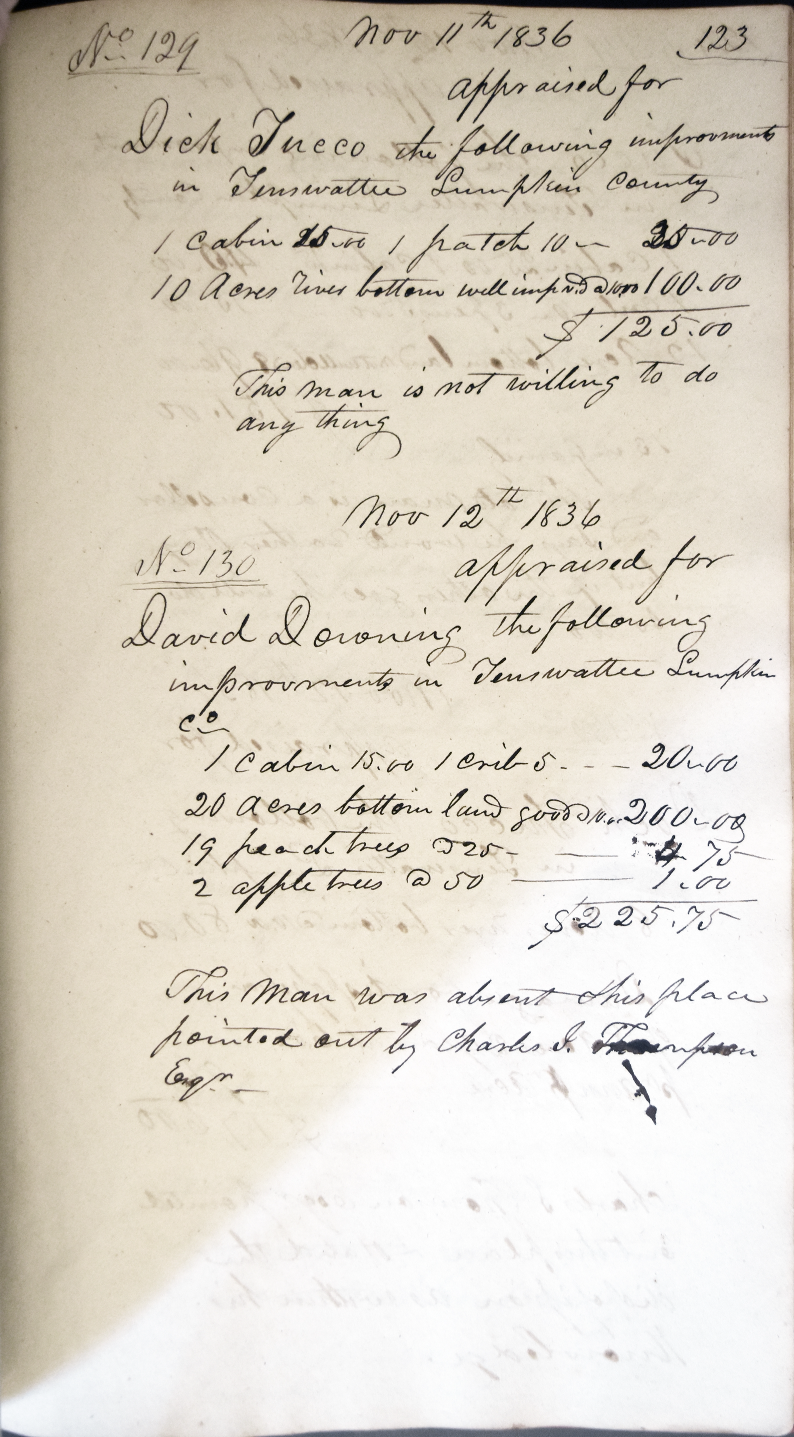 No 129 Nov 11th 1836 123
appraised for
Dick Tucco the following improvments
in Tenswattee Lumpkin County
1 Cabin 25.00 1 patch 10 — 35-00
10 Acres river bottom well impvd @ 10.00 100-00
$ 125.00
This man is not willing to do
any thing
Nov 12th 1836
No 130 appraised for
David Downing the following
improvments in Tenswattee Lumpkin
Co
1 Cabin 15.00 1 crib 5 - - - 20-00
20 Acres bottom land good @ 10.. 200-00
19 peach trees @ 25 - — 4.75
2 apple trees @ 50 — 1.00
$ 225.75
This Man was absent this place
pointed out by Charles J. Thompson
Esqr